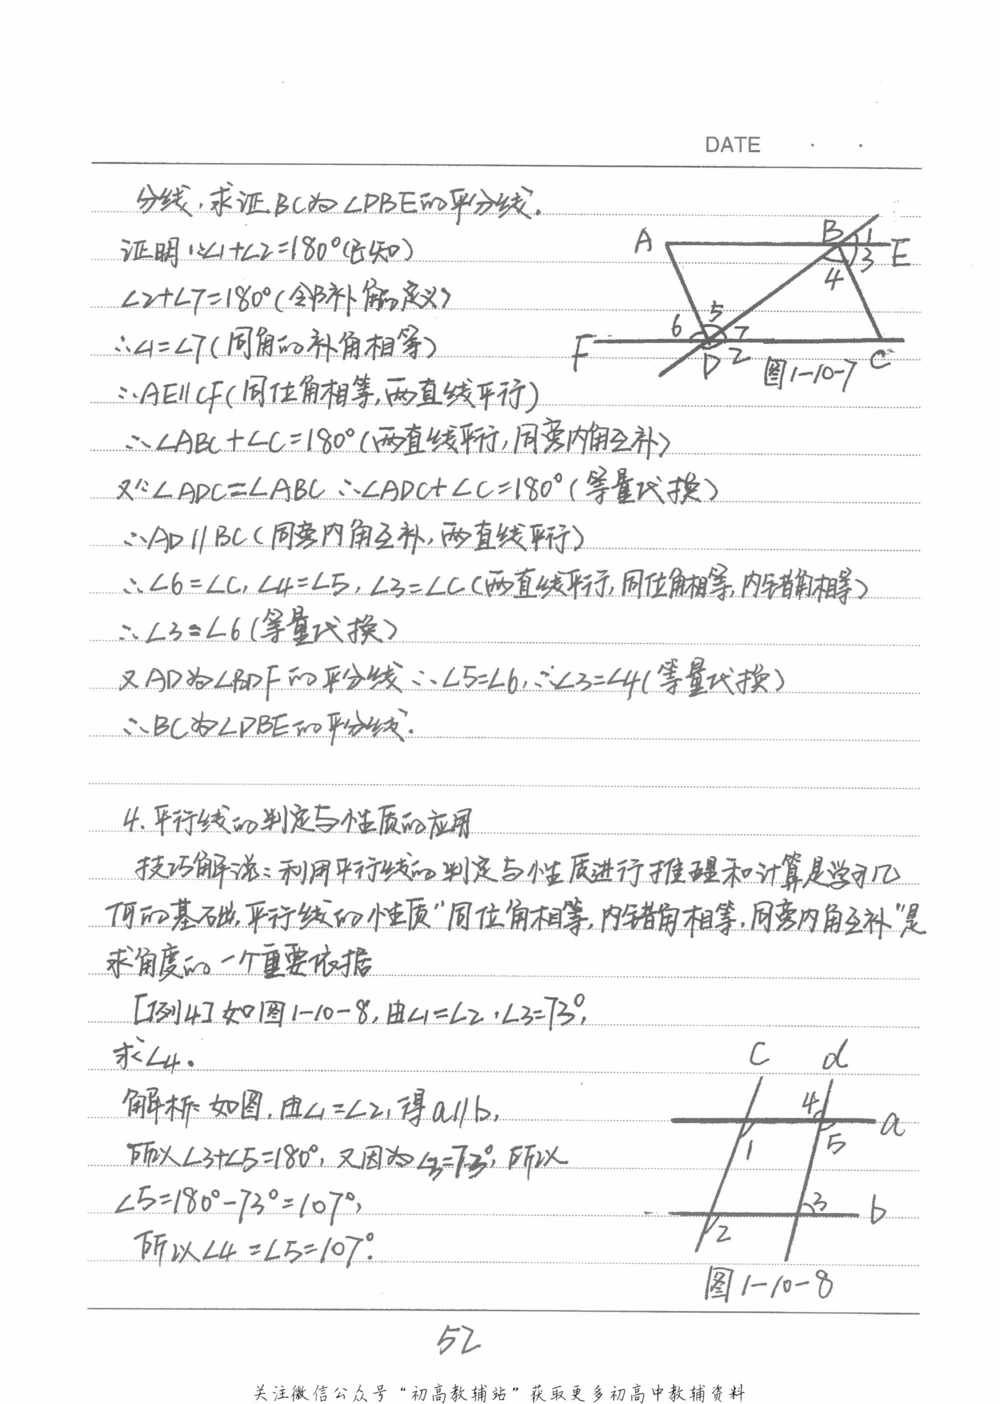 DATE · ·
分线,求证BC为∠DBE的平分线.
证明:∵∠1+∠2=180°(已知)
∠2+∠7=180°(邻补角的定义)
∴∠1=∠7(同角的补角相等)
∴AE∥CF(同位角相等,两直线平行)
∴∠ABC+∠C=180°(两直线平行,同旁内角互补)
又∵∠ADC=∠ABC ∴∠ADC+∠C=180°(等量代换)
∴AD∥BC(同旁内角互补,两直线平行)
∴∠6=∠C,∠4=∠5,∠3=∠C(两直线平行,同位角相等,内错角相等)
∴∠3=∠6(等量代换)
又AD为∠BDF的平分线∴∠5=∠6,∴∠3=∠4(等量代换)
∴BC为∠DBE的平分线.
A B 1 E
3
4
5
6 7
F D 2 C
图1-10-7
4.平行线的判定与性质的应用
技巧解说:利用平行线的判定与性质进行推理和计算是学习几
何的基础,平行线的性质“同位角相等,内错角相等,同旁内角互补”是
求角度的一个重要依据
[例4]如图1-10-8,由∠1=∠2,∠3=73°,
求∠4.
解析:如图,由∠1=∠2,得a∥b,
所以∠3+∠5=180°,又因为∠3=73°,所以
∠5=180°-73°=107°,
所以∠4=∠5=107°.
c d
4 a
1 5
3 b
2
图1-10-8
52
关注微信公众号“初高教辅站”获取更多初高中教辅资料